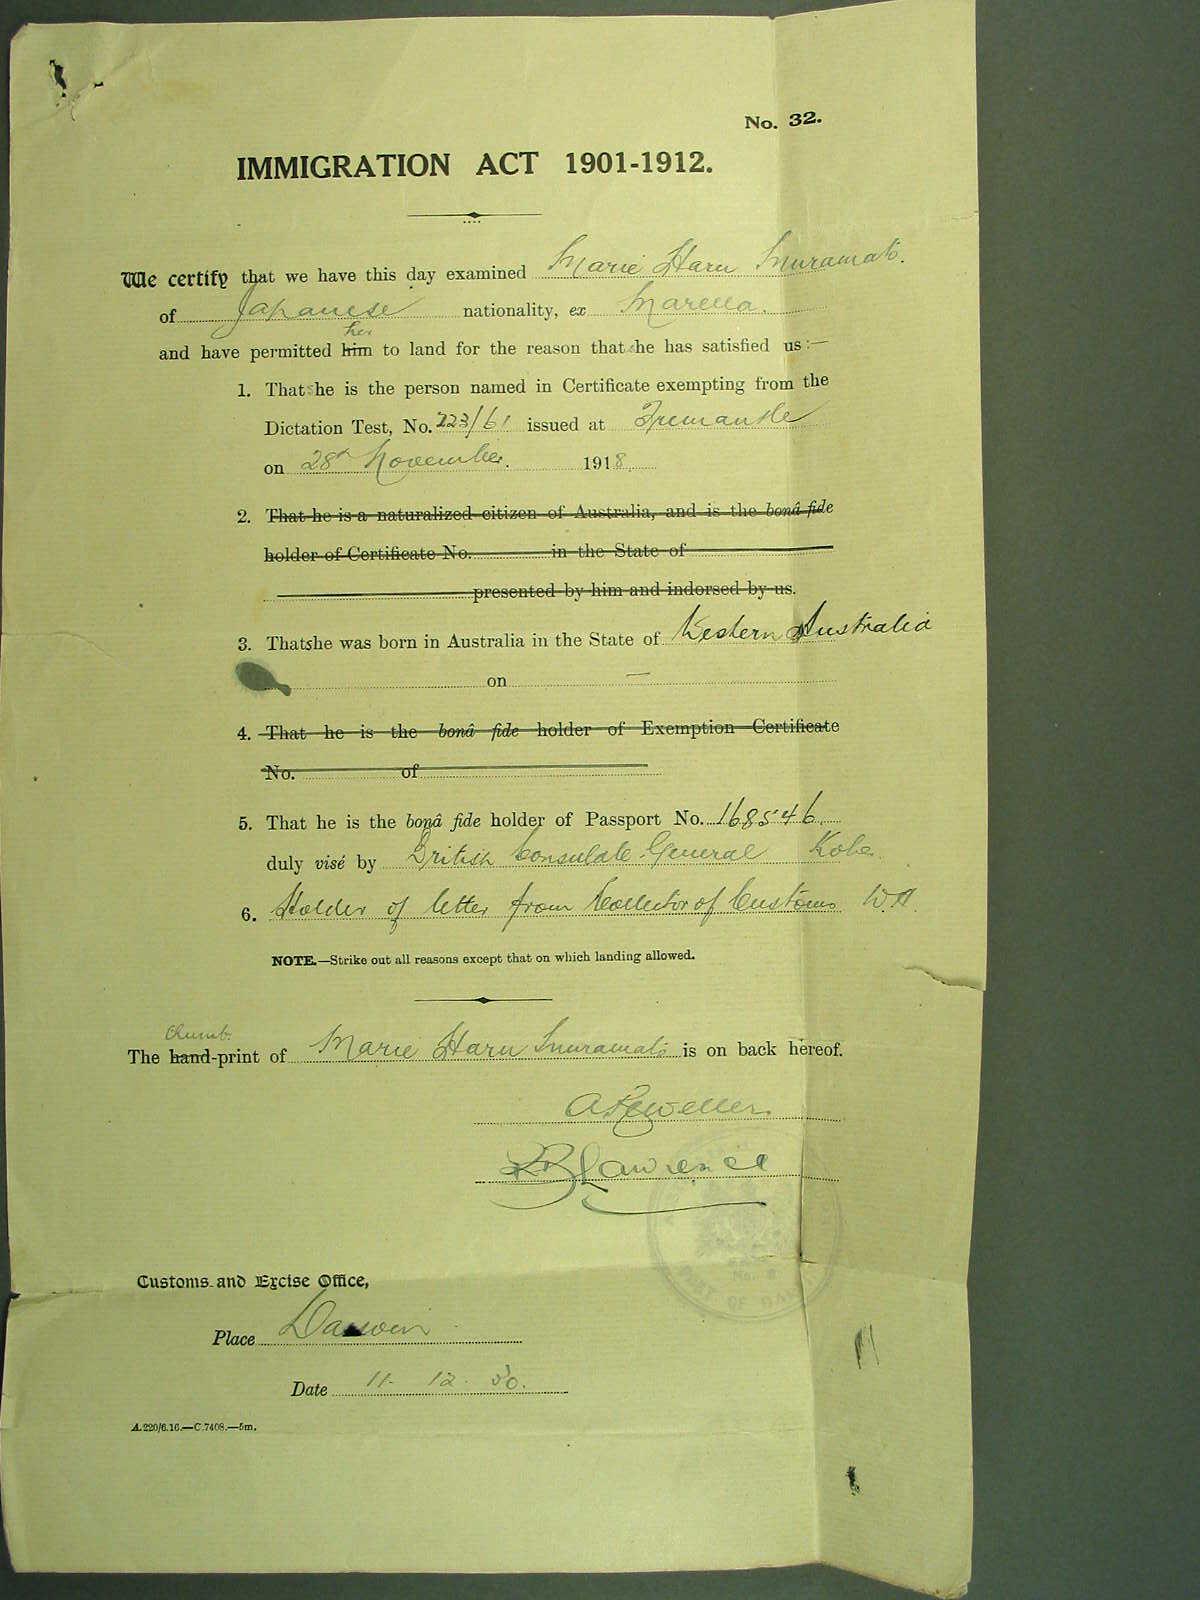 No. 32.
IMMIGRATION ACT 1901-1912.
We certify that we have this day examined Marie Haru Muramats.
of Japanese nationality, ex Marella.
her
and have permitted him to land for the reason that she has satisfied us:—
1. That she is the person named in Certificate exempting from the
Dictation Test, No. 223/61 issued at Fremantle
on 28th November. 1918.
2. That he is a naturalized citizen of Australia, and is the bonâ fide
holder of Certificate No. in the State of
presented by him and indorsed by us.
3. That she was born in Australia in the State of Western Australia
on —
4. That he is the bonâ fide holder of Exemption Certificate
No. of
5. That he is the bonâ fide holder of Passport No. 168546.
duly visé by British Consulate General Kobe.
6. Holder of letter from Collector of Customs W.A.
NOTE.—Strike out all reasons except that on which landing allowed.
thumb
The hand-print of Marie Haru Muramats is on back hereof.
Lawrence
Customs and Excise Office,
Place Darwin
Date 11. 12. 30.
A.220/6.16.—C.7408.—5m.